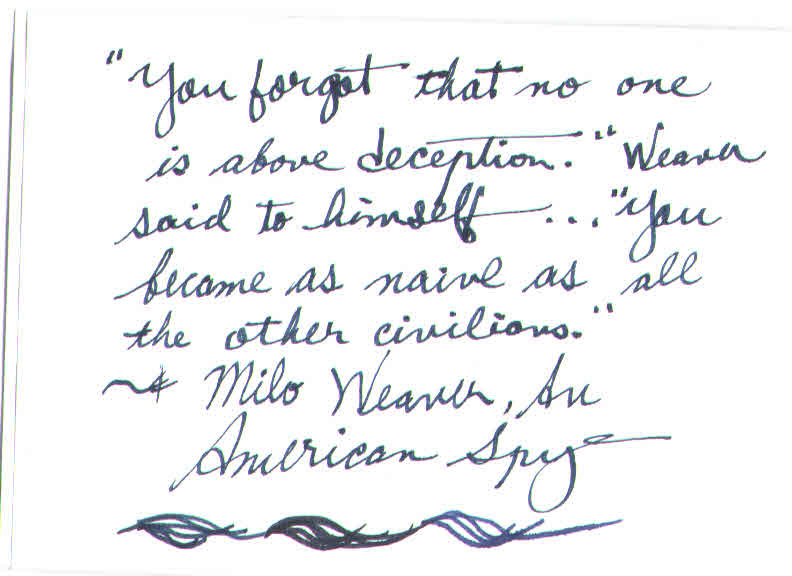 "You forgot that no one
is above deception." Weaver
said to himself ... "You
became as naive as all
the other civilians."
~ Milo Weaver, An
American Spy